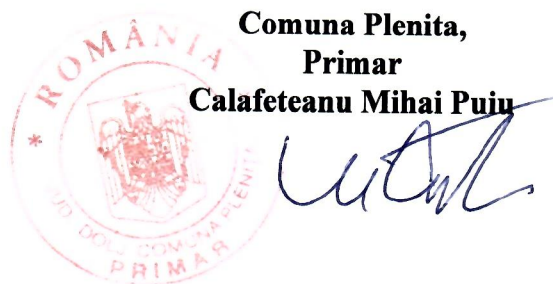 Comuna Plenita,
Primar
Calafeteanu Mihai Puiu
* ROMÂNIA *
JUD DOLJ COMUNA PLENITA
PRIMAR